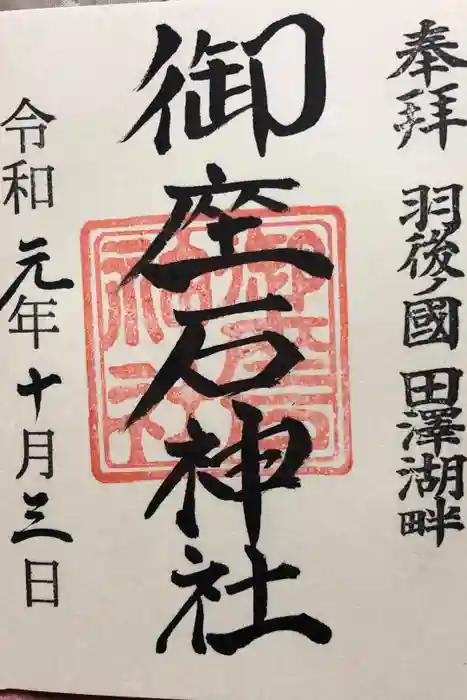 奉拝 羽後ノ國 田澤湖畔
御座石神社
御座石神社
令和元年十月三日